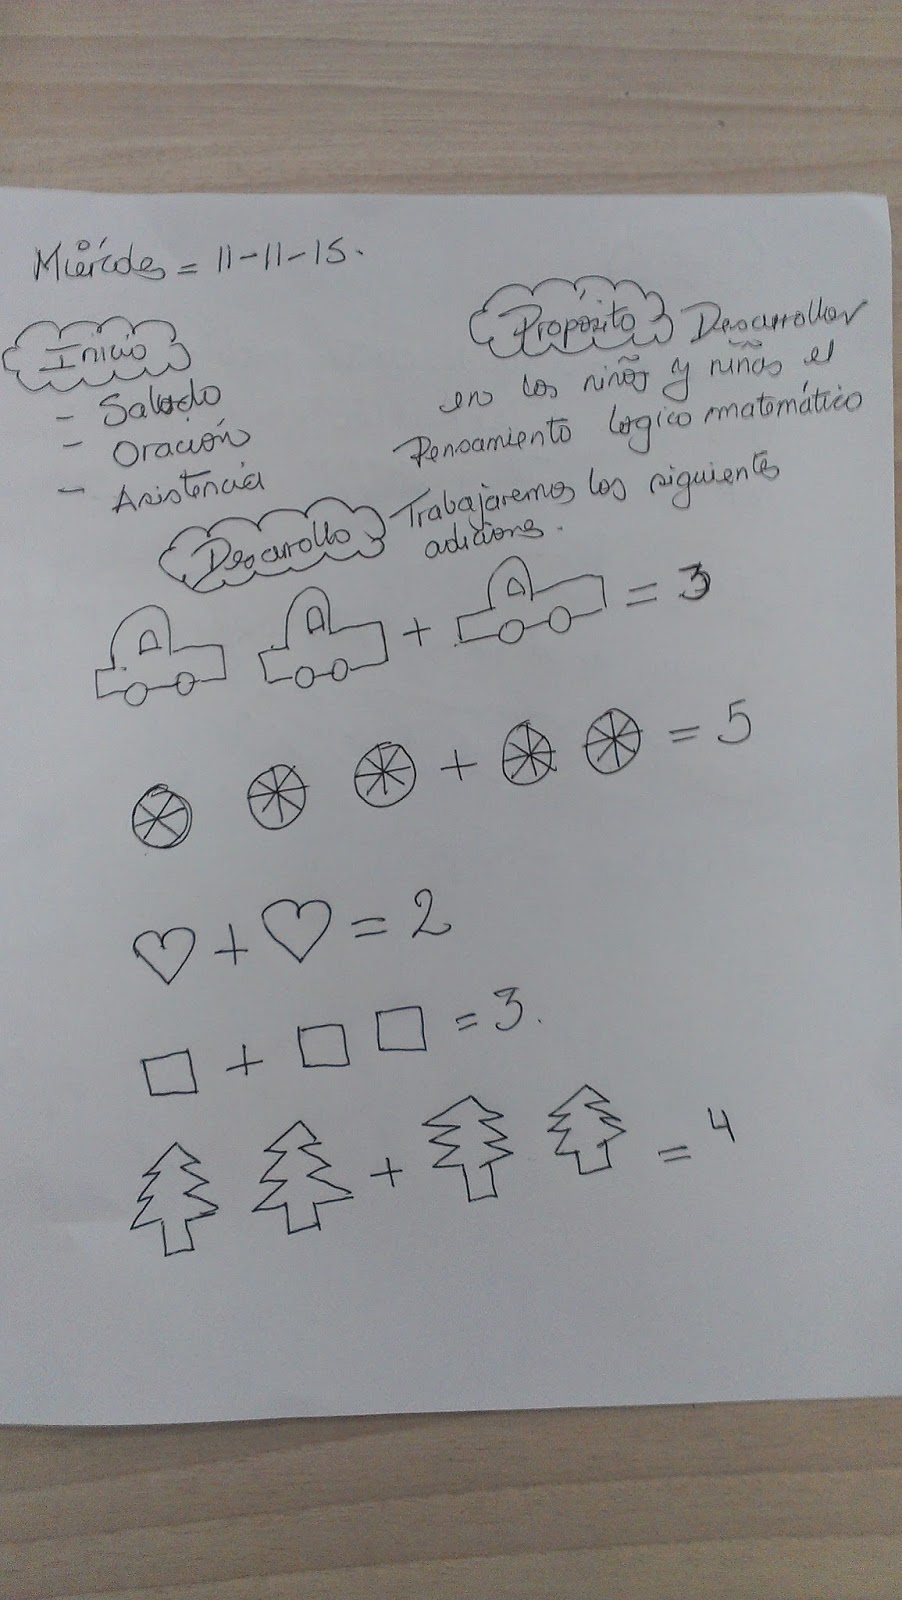 Miércoles = 11-11-15.
Propósito Desarrollar
en los niños y niñas el
Pensamiento logico matemático
Inicio
- Saludo
- Oración
- Asistencia
Desarrollo Trabajaremos las siguientes
adiciones.
+ = 3
+ = 5
+ = 2
+ = 3.
+ = 4